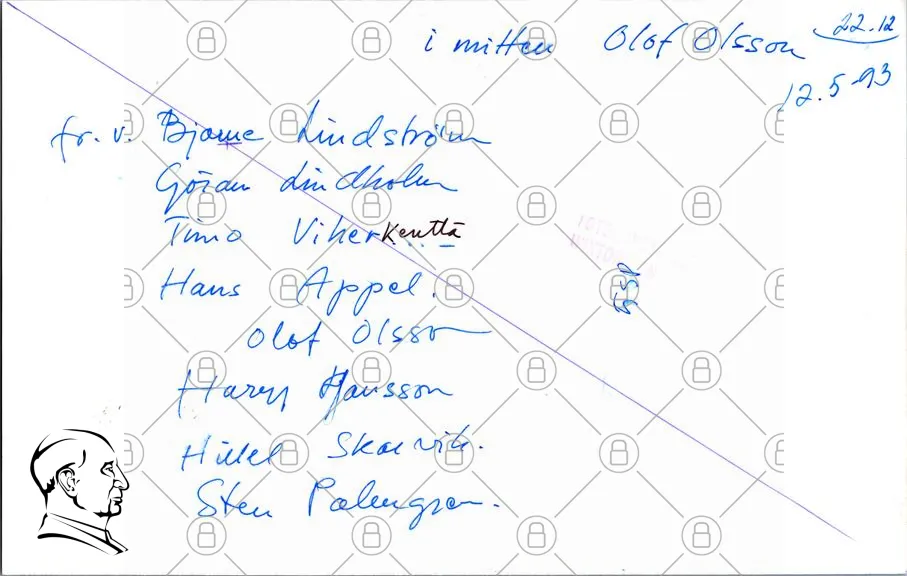 i mitten Olof Olsson 22.12
12.5-93
fr. v. Bjarne Lindström
Göran Lindholm
Timo Viherkenttä
Hans Appel.
Olof Olsson
Harry Hansson
Sten Palmgren.